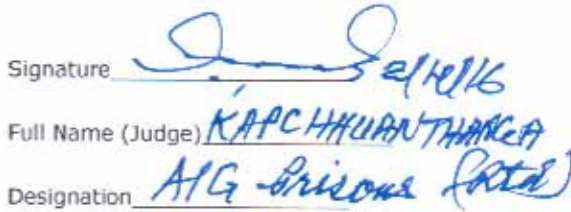 Signature 2/12/16
Full Name (Judge) KAPCHHUANTHANGA
Designation AIG Prisons (Rtd)